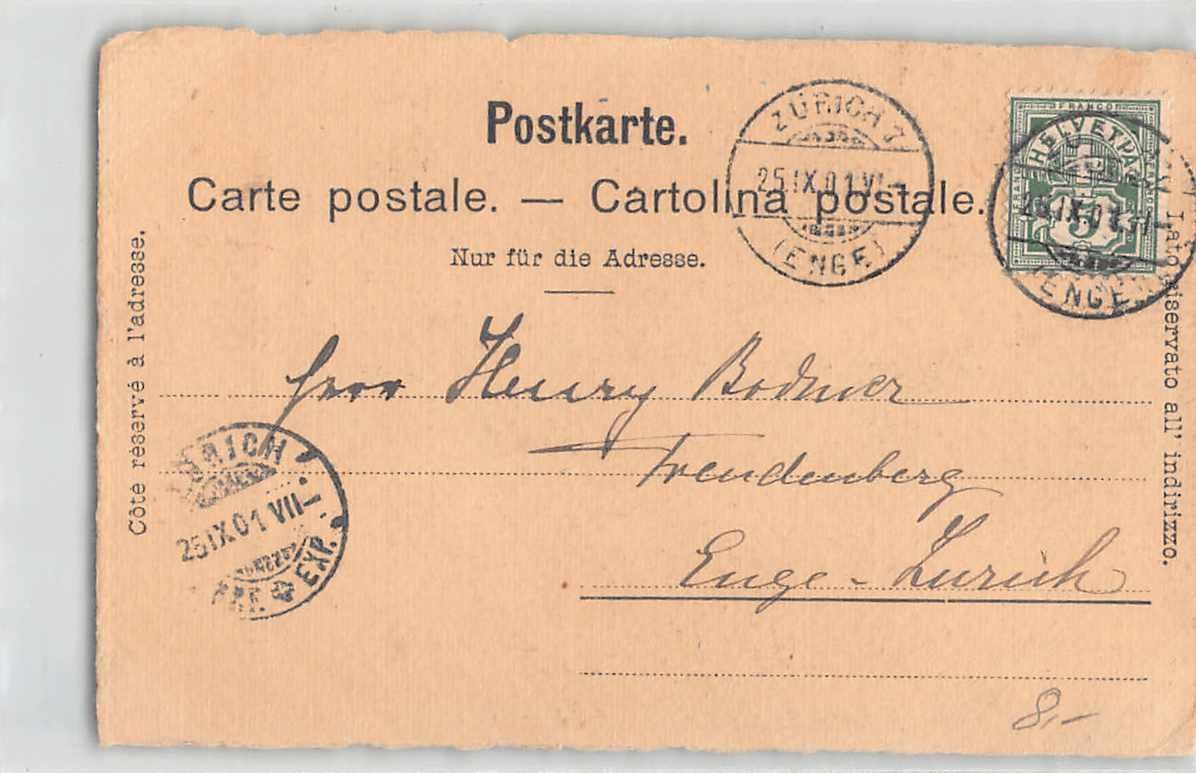 Postkarte.
Carte postale. — Cartolina postale.
Nur für die Adresse.
Côte réservé à l'adresse.
Lato riservato all' indirizzo.
ZÜRICH 7
25.IX.01.VI-
(ENGE)
FRANCO
HELVETIA
5
25.IX.01.VI-
(ENGE)
Herr Henry Bodmer
Freudenberg
Enge-Zürich
ZÜRICH
25.IX.01.VII-
EXP.
8.-